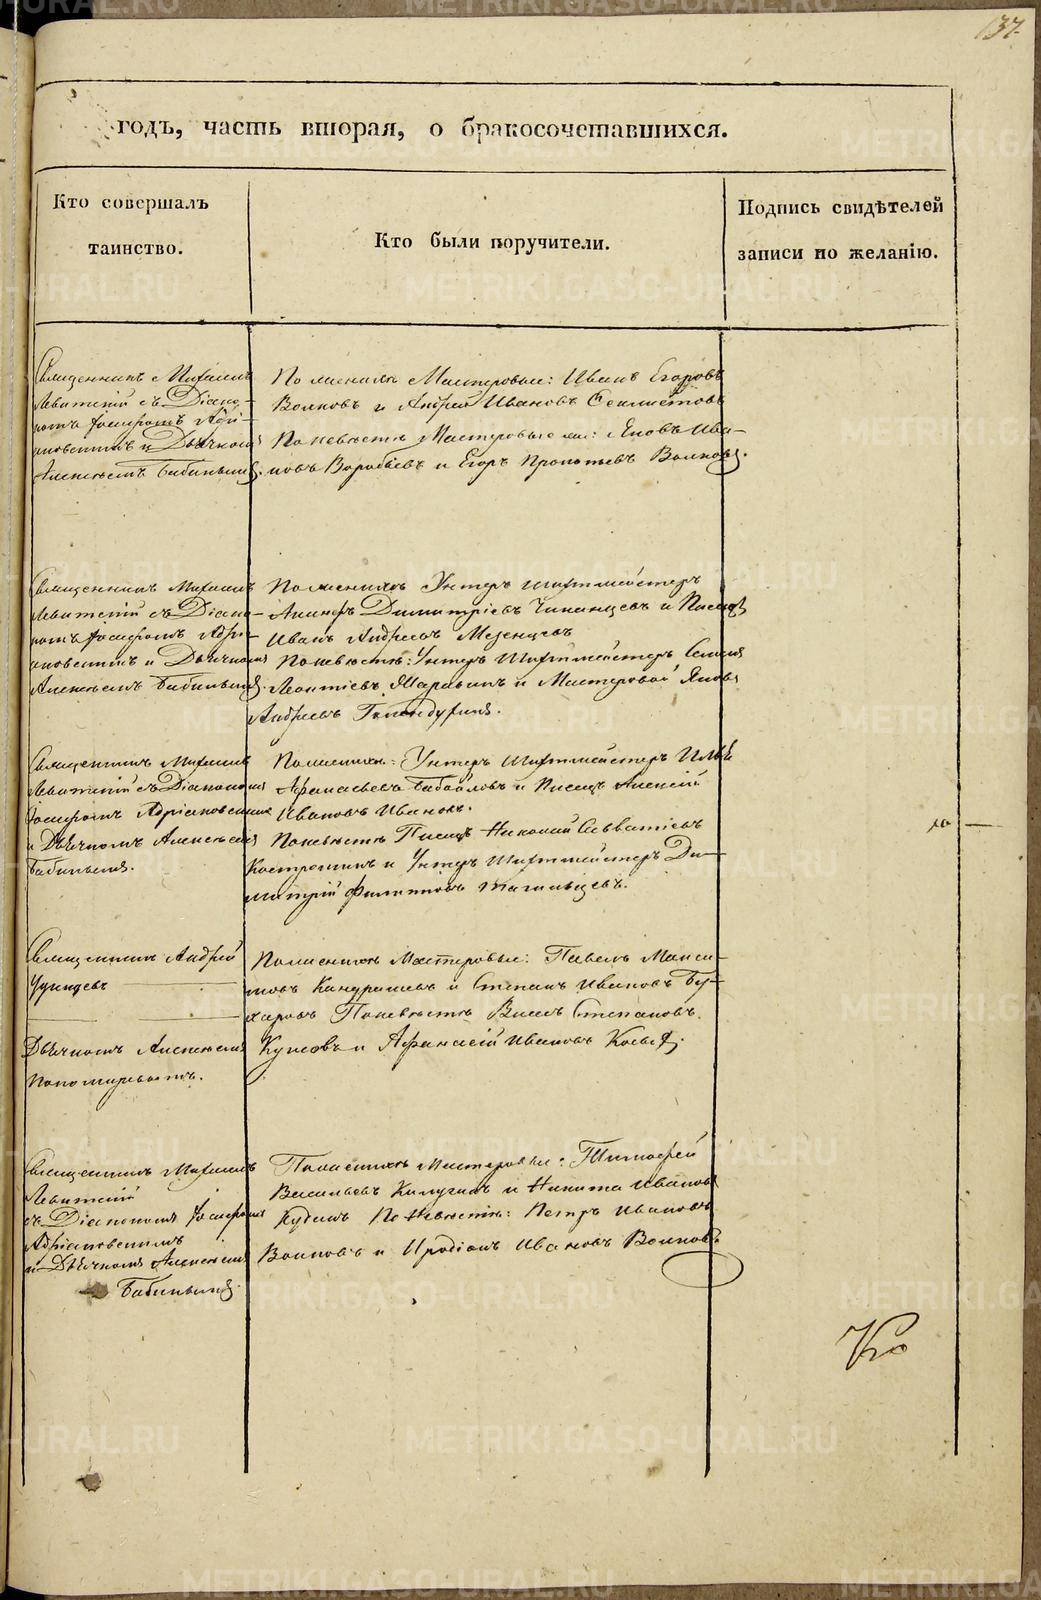 137.
годъ, часть вторая, о бракосочетавшихся.
Кто совершалъ
таинство.
Кто были поручители.
Подпись свидѣтелей
записи по желанію.
Священникъ Михаилъ
Левитскій съ Діако-
номъ Іосифомъ Адрі-
ановскимъ и Дьячкомъ
Алексѣемъ Бабинымъ.
По женихѣ Мастеровые: Иванъ Егоровъ
Волковъ и Андрей Ивановъ
По невѣстѣ Мастеровые же: Яковъ Ива-
новъ Воробьевъ и Егоръ Прокопьевъ Волковъ.
Священникъ Михаилъ
Левитскій съ Діако-
номъ Іосифомъ Адрі-
ановскимъ и Дьячкомъ
Алексѣемъ Бабинымъ.
По женихѣ Унтеръ Шихтмейстеръ
Димитріевъ и Писецъ
Иванъ Андреевъ Мезенцевъ
По невѣстѣ: Унтеръ Шихтмейстеръ
Леонтіевъ и Мастеровой Яковъ
Андреевъ
Священникъ Михаилъ
Левитскій съ Діакономъ
Іосифомъ Адріановскимъ
и Дьячкомъ Алексѣемъ
Бабинымъ.
По женихѣ: Унтеръ Шихтмейстеръ Илья
Афанасьевъ и Писецъ Алексѣй
Ивановъ Ивановъ.
По невѣстѣ Писецъ Николай Савватіевъ
Костроминъ и Унтеръ Шихтмейстеръ Ди-
митрій Филиповъ Тагильцевъ.
Священникъ Андрей
Удинцевъ
Дьячкомъ Алексѣемъ
Пономаревымъ.
По женихѣ Мастеровые: Павелъ Макси-
мовъ и Степанъ Ивановъ Бу-
харовъ По невѣстѣ Степановъ
и Афанасій Ивановъ
Священникъ Михаилъ
Левитскій
съ Діакономъ Іосифомъ
Адріановскимъ
и Дьячкомъ Алексѣемъ
Бабинымъ.
По женихѣ Мастеровые: Тимофей
Васильевъ и Никита Ивановъ
По невѣстѣ: Петръ Ивановъ
Волковъ и Иродіонъ Ивановъ Волковъ.
METRIKI.GASO-URAL.RU